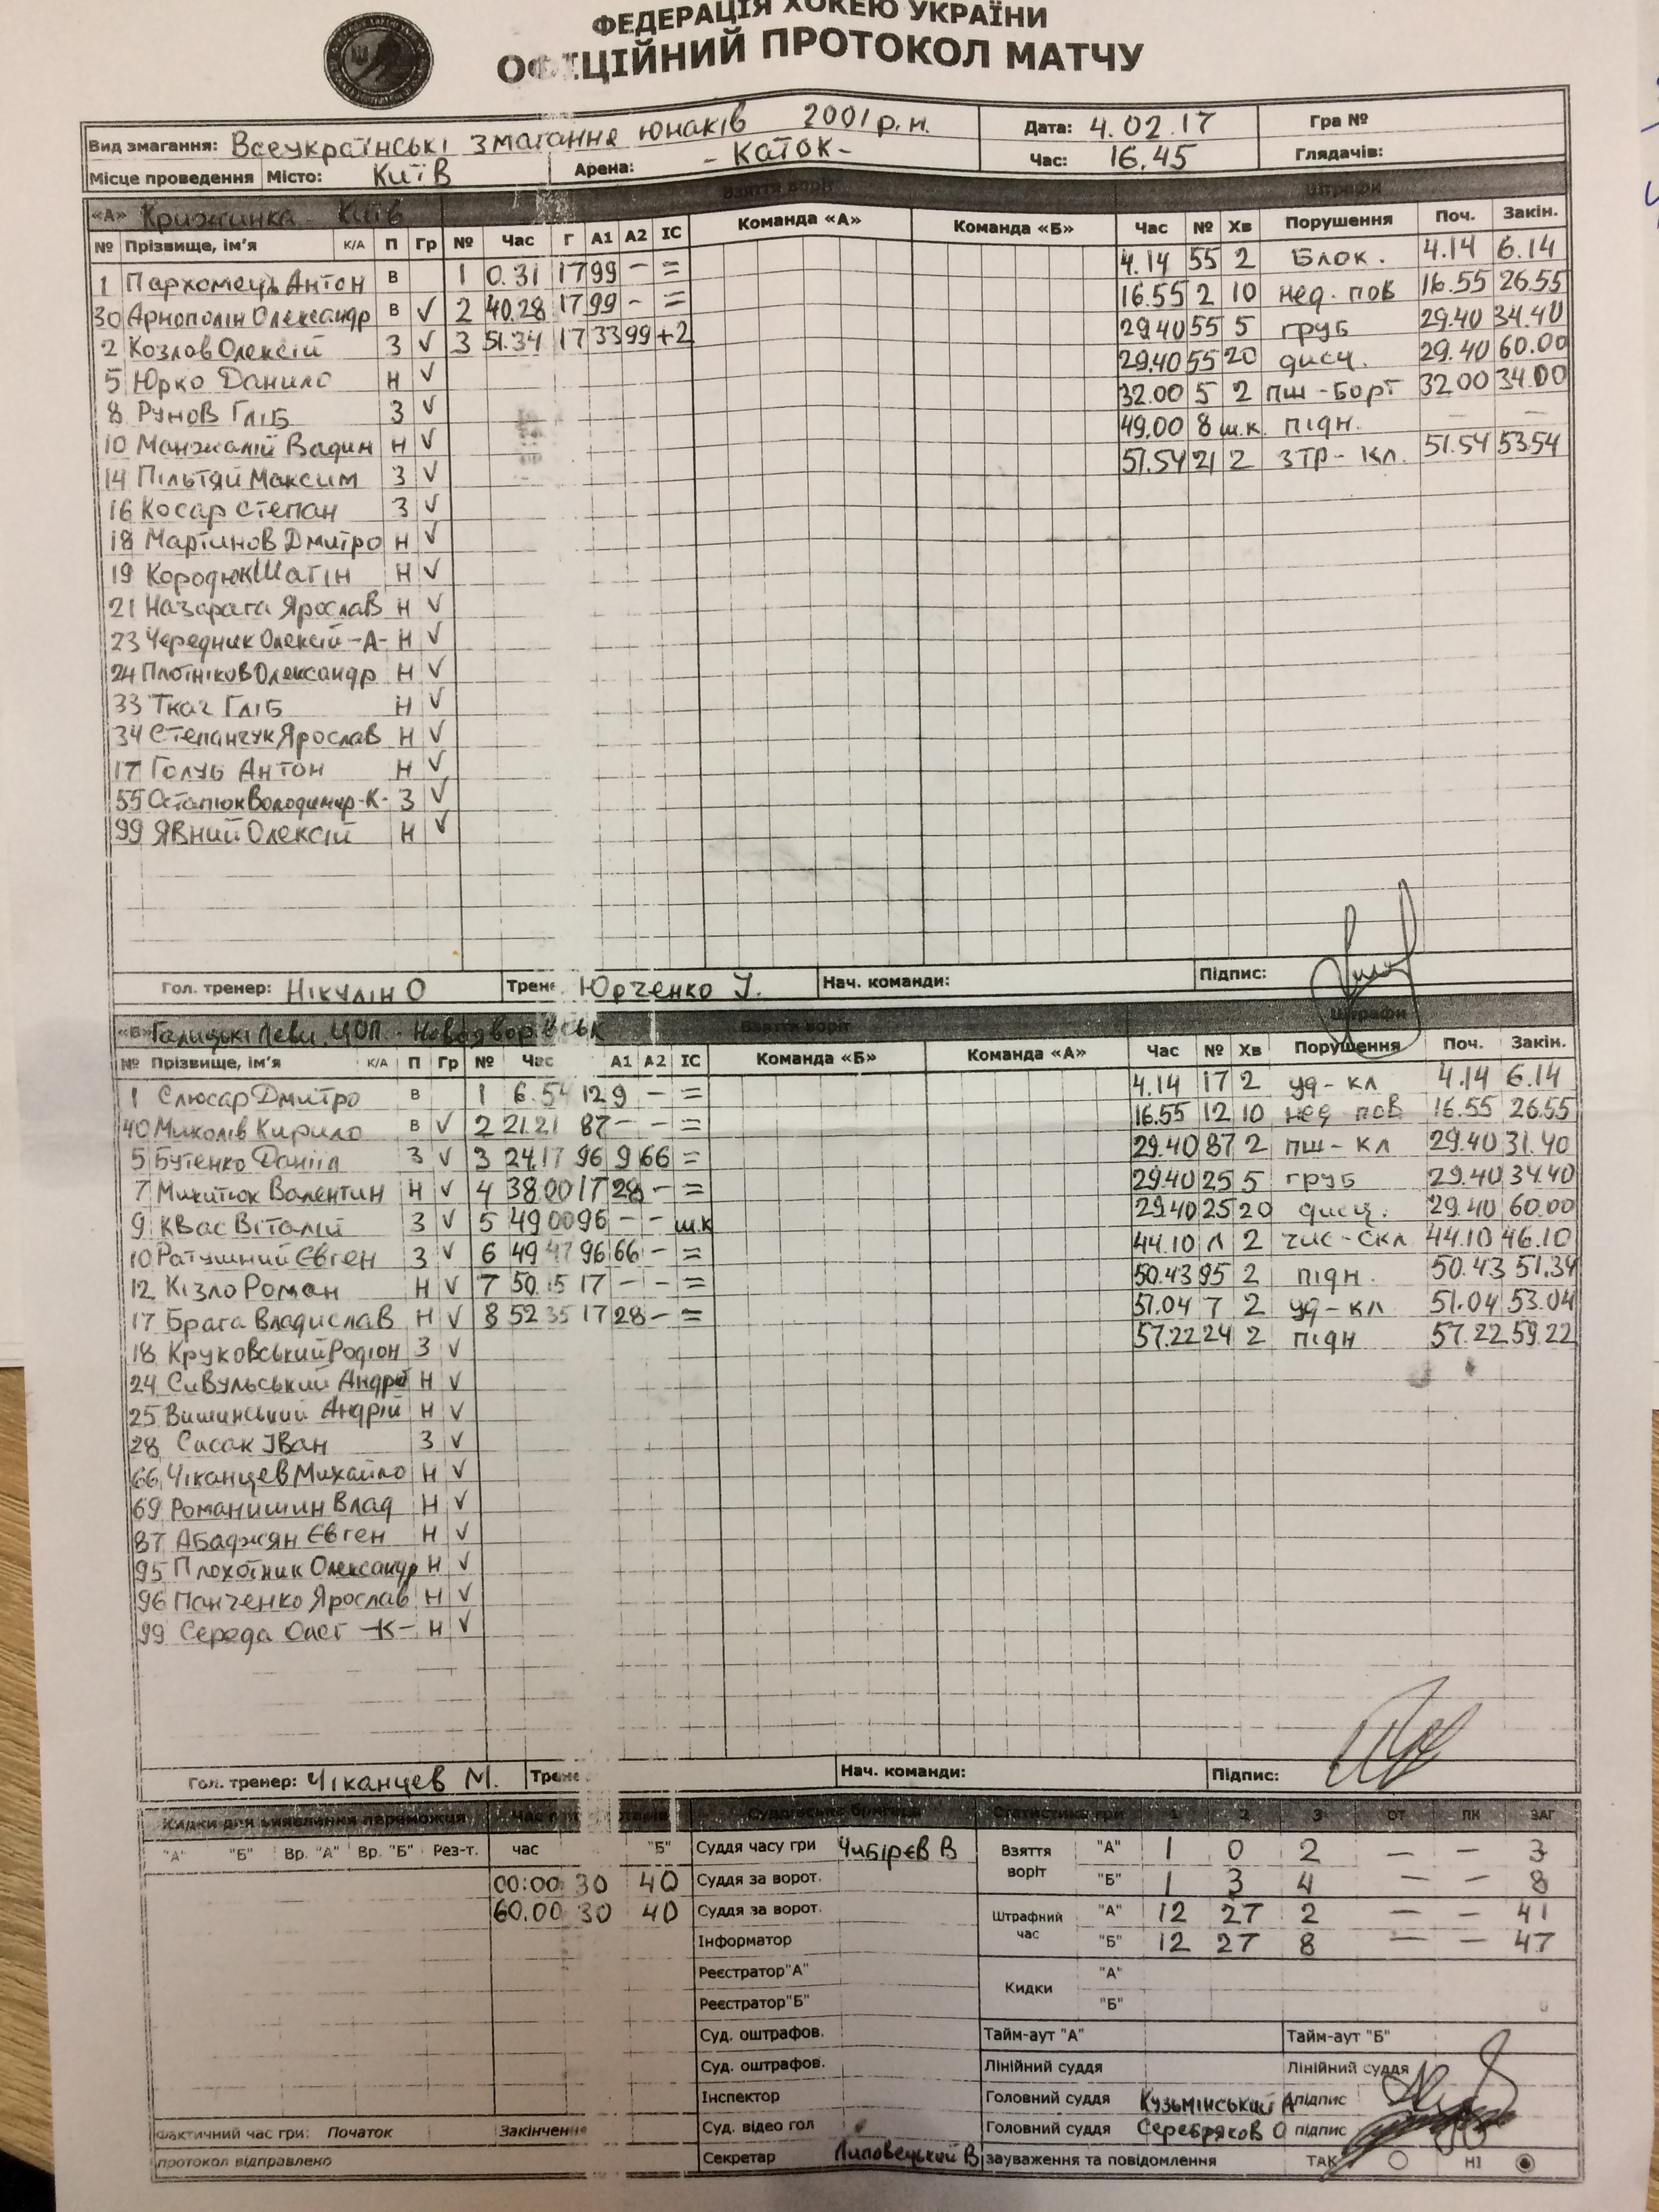 ФЕДЕРАЦІЯ ХОКЕЮ УКРАЇНИ
ОФІЦІЙНИЙ ПРОТОКОЛ МАТЧУ
Вид змагання: Всеукраїнські змагання юнаків 2001 р.н. Дата: 4.02.17 Гра №
Місце проведення Місто: Київ Арена: - Каток - Час: 16.45 Глядачів:
«А» Крижинка - Київ Взяття воріт Штрафи
№ Прізвище, ім'я К/А П Гр № Час Г А1 А2 ІС Команда «А» Команда «Б» Час № Хв Порушення Поч. Закін.
1 Пархомець Антон В 1 0.31 17 99 - = 4.14 55 2 Блок. 4.14 6.14
30 Арнополін Олександр В V 2 40.28 17 99 - = 16.55 2 10 нед. пов 16.55 26.55
2 Козлов Олексій З V 3 51.34 17 33 99 +2 29.40 55 5 груб 29.40 34.40
5 Юрко Данило Н V 29.40 55 20 дисц. 29.40 60.00
8 Рунов Гліб З V 32.00 5 2 пш-борт 32.00 34.00
10 Манжалій Вадим Н V 49.00 8 ш.к. підн. - -
14 Пільтяй Максим З V 51.54 21 2 зтр-кл. 51.54 53.54
16 Косар Степан З V
18 Мартинов Дмитро Н V
19 Кородюк Шагін Н V
21 Назарага Ярослав Н V
23 Чередник Олексій -А- Н V
24 Плотніков Олександр Н V
33 Ткач Гліб Н V
34 Степанчук Ярослав Н V
17 Голуб Антон Н V
55 Остапюк Володимир -К- З V
99 Явний Олексій Н V
Гол. тренер: Нікулін О Трене Юрченко І. Нач. команди: Підпис:
«Б» Галицькі Леви ЦОП - Новояворівськ Взяття воріт Штрафи
№ Прізвище, ім'я К/А П Гр № Час А1 А2 ІС Команда «Б» Команда «А» Час № Хв Порушення Поч. Закін.
1 Слюсар Дмитро В 1 6.54 12 9 - = 4.14 17 2 уд-кл 4.14 6.14
40 Миколів Кирило В V 2 21.21 87 - - = 16.55 12 10 нед пов 16.55 26.55
5 Бутенко Данііл З V 3 24.17 96 9 66 = 29.40 87 2 пш-кл 29.40 31.40
7 Микитюк Валентин Н V 4 38.00 17 28 - = 29.40 25 5 груб 29.40 34.40
9 Квас Віталій З V 5 49.00 96 - - ш.к 29.40 25 20 дисц. 29.40 60.00
10 Ратушний Євген З V 6 49.47 96 66 - = 44.10 Л 2 чис-скл 44.10 46.10
12 Кізло Роман Н V 7 50.15 17 - - = 50.43 95 2 підн. 50.43 51.34
17 Брага Владислав Н V 8 52.35 17 28 - = 51.04 7 2 уд-кл 51.04 53.04
18 Круковський Родіон З V 57.22 24 2 підн 57.22 59.22
24 Сивульський Андрій Н V
25 Вишинський Андрій Н V
28 Сисак Іван З V
66 Чіканцев Михайло Н V
69 Романишин Влад Н V
87 Абаджян Євген Н V
95 Плохотник Олександр Н V
96 Панченко Ярослав Н V
99 Середа Олег -К- Н V
Гол. тренер: Чіканцев М. Трене Нач. команди: Підпис:
Кидки для виявлення переможця Суддівська бригада Статистика гри 1 2 3 ОТ ПК ЗАГ
"А" "Б" Вр. "А" Вр. "Б" Рез-т. час "Б" Суддя часу гри Чибірєв В Взяття воріт "А" 1 0 2 - - 3
00:00 30 40 Суддя за ворот. "Б" 1 3 4 - - 8
60.00 30 40 Суддя за ворот. Штрафний час "А" 12 27 2 - - 41
Інформатор "Б" 12 27 8 - - 47
Реєстратор "А" Кидки "А"
Реєстратор "Б" "Б"
Суд. оштрафов. Тайм-аут "А" Тайм-аут "Б"
Суд. оштрафов. Лінійний суддя Лінійний суддя
Інспектор Головний суддя Кузьмінський А підпис
Фактичний час гри: Початок Закінчення Суд. відео гол Головний суддя Серебряков О підпис
протокол відправлено Секретар Липовецький В зауваження та повідомлення ТАК НІ